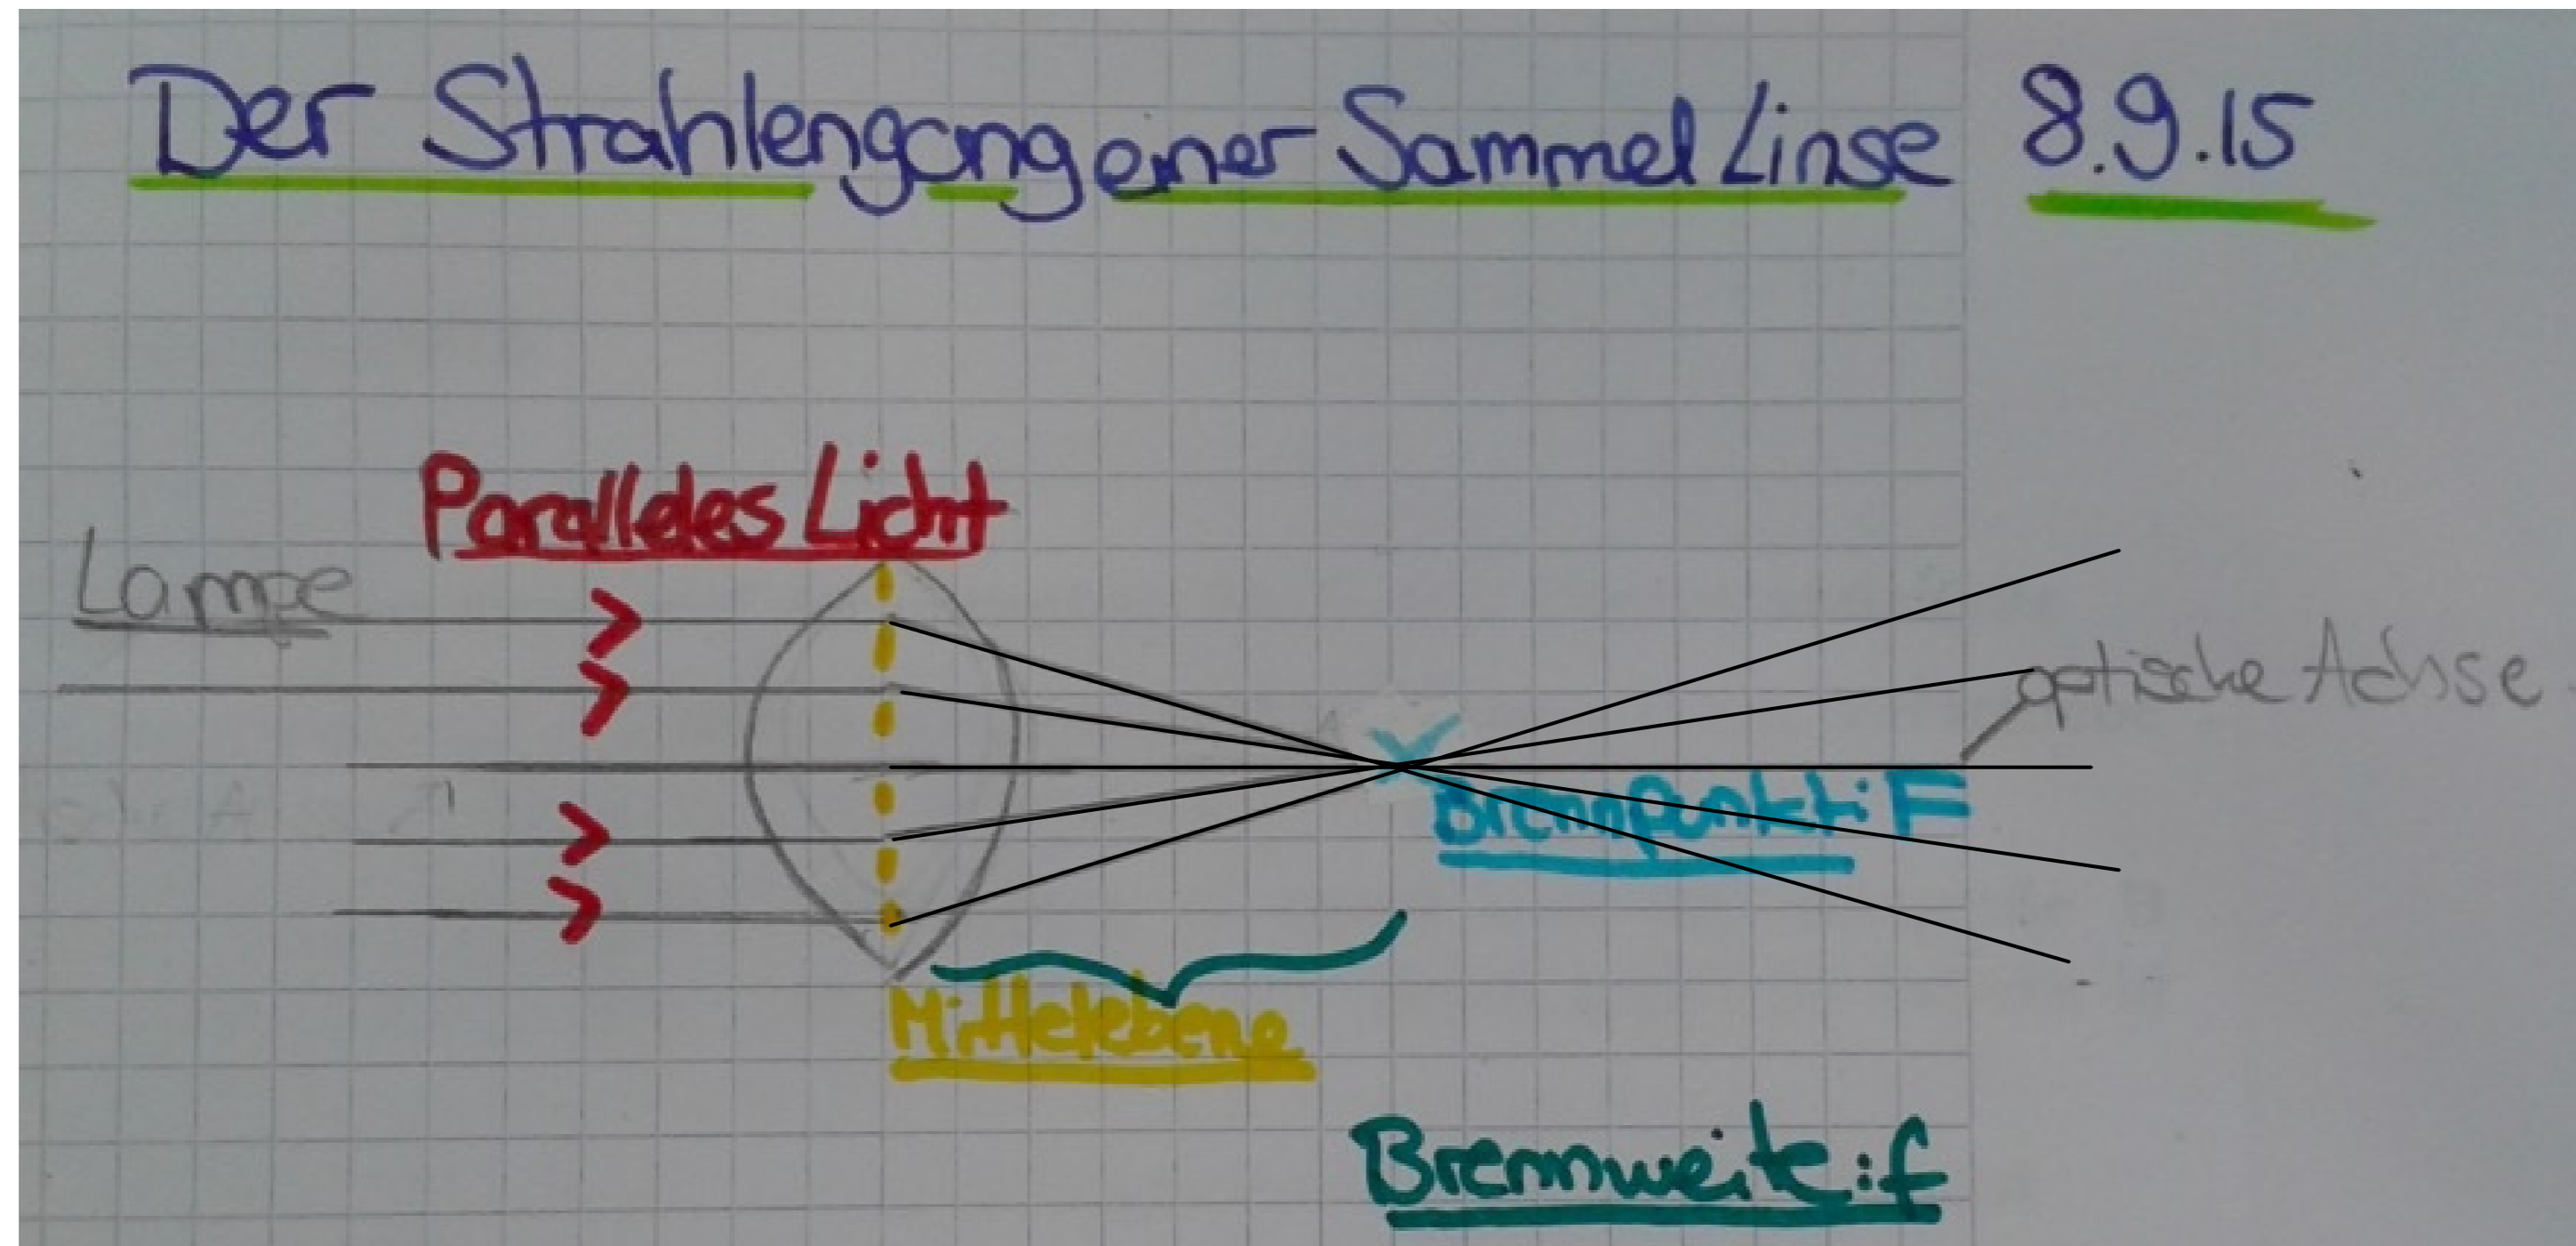 Der Strahlengang einer Sammel Linse 8.9.15
Paralleles Licht
Lampe
optische Achse
Brennpunkt: F
Mittelebene
Brennweite: f